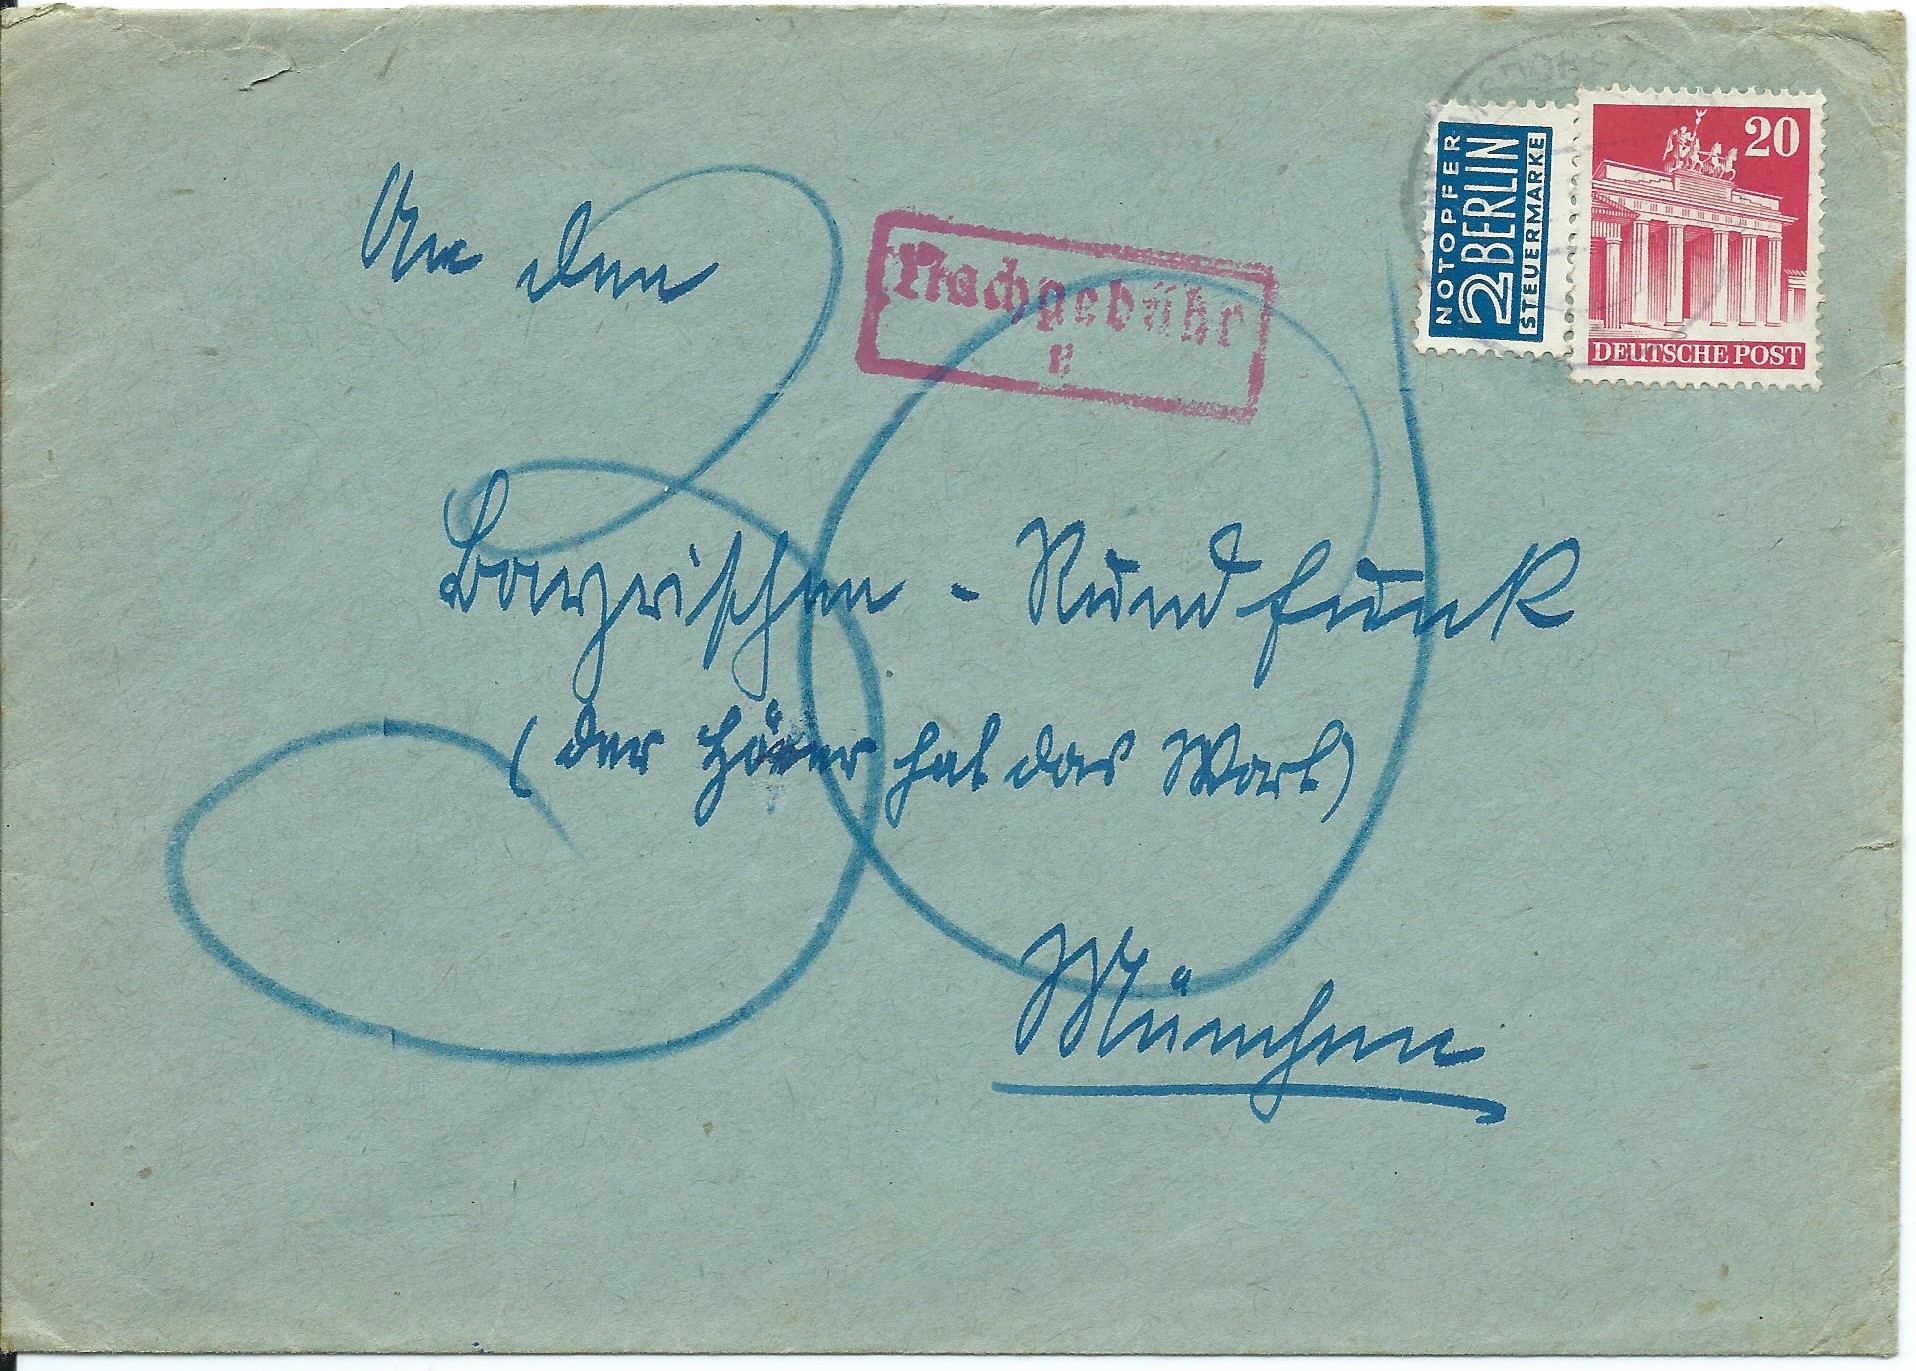 NOTOPFER
2 BERLIN
STEUERMARKE
20
DEUTSCHE POST
Nachgebühr
An den
30
Bayrischen - Rundfunk
(der Hörer hat das Wort)
München